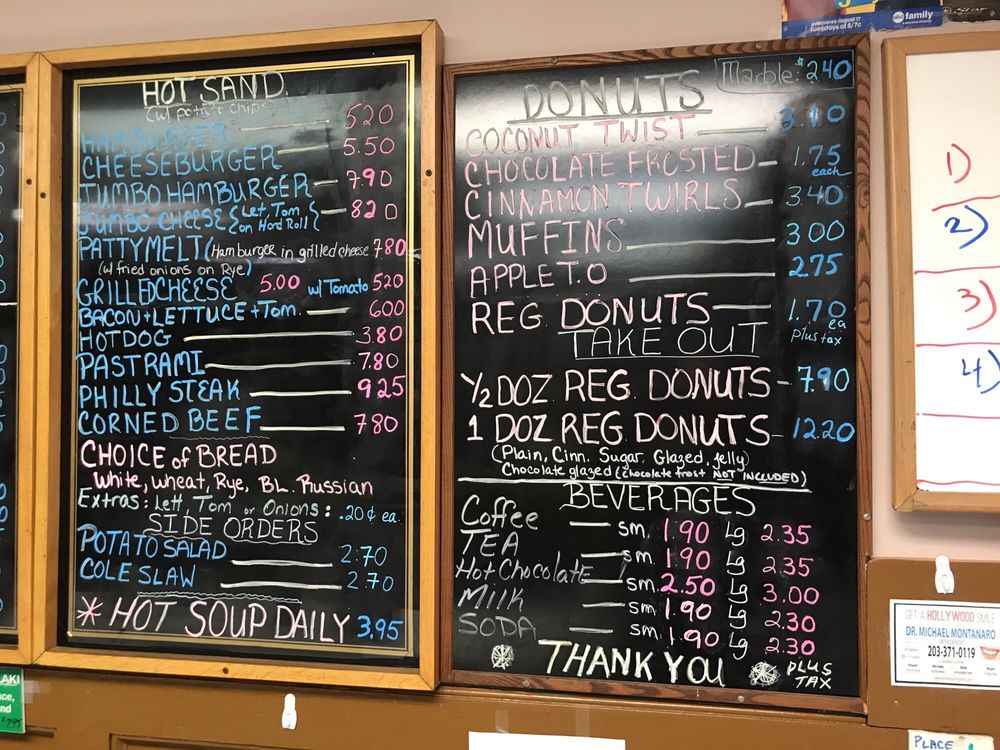 HOT SAND.
(w/ potato chips)
HAMBURGER 520
CHEESEBURGER 5.50
JUMBO HAMBURGER 7.90
JUMBO CHEESE { Let, Tom on Hard Roll } 820
PATTYMELT (Hamburger in grilled cheese 780
(w/ fried onions on Rye)
GRILLEDCHEESE 5.00 w/ Tomato 520
BACON+LETTUCE+Tom. 600
HOTDOG 3.80
PASTRAMI 7.80
PHILLY STEAK 925
CORNED BEEF 780
CHOICE of BREAD
White, wheat, Rye, BL. Russian
Extras: Lett, Tom or Onions: .20¢ ea.
SIDE ORDERS
POTATO SALAD 2.70
COLE SLAW 2.70
* HOT SOUP DAILY 3.95
Marble: $240
DONUTS
COCONUT TWIST
CHOCOLATE FROSTED 1.75 each
CINNAMON TWIRLS 3.40
MUFFINS 300
APPLE T.O 2.75
REG. DONUTS 1.70 ea
plus tax
TAKE OUT
1/2 DOZ REG. DONUTS - 7.90
1 DOZ. REG. DONUTS - 12.20
(Plain, Cinn. Sugar. Glazed, jelly)
Chocolate glazed (chocolate frost NOT INCLUDED)
BEVERAGES
Coffee sm. 1.90 Lg 2.35
TEA sm 1.90 Lg 2.35
Hot Chocolate sm. 2.50 Lg 3.00
Milk sm. 1.90 Lg 2.30
SODA sm. 1.90 Lg 2.30
THANK YOU
PLUS TAX
abc family
tuesdays at 8/7c
1)
2)
3)
4)
GET A HOLLYWOOD SMILE
DR. MICHAEL MONTANARO
203-371-0119
PLACE